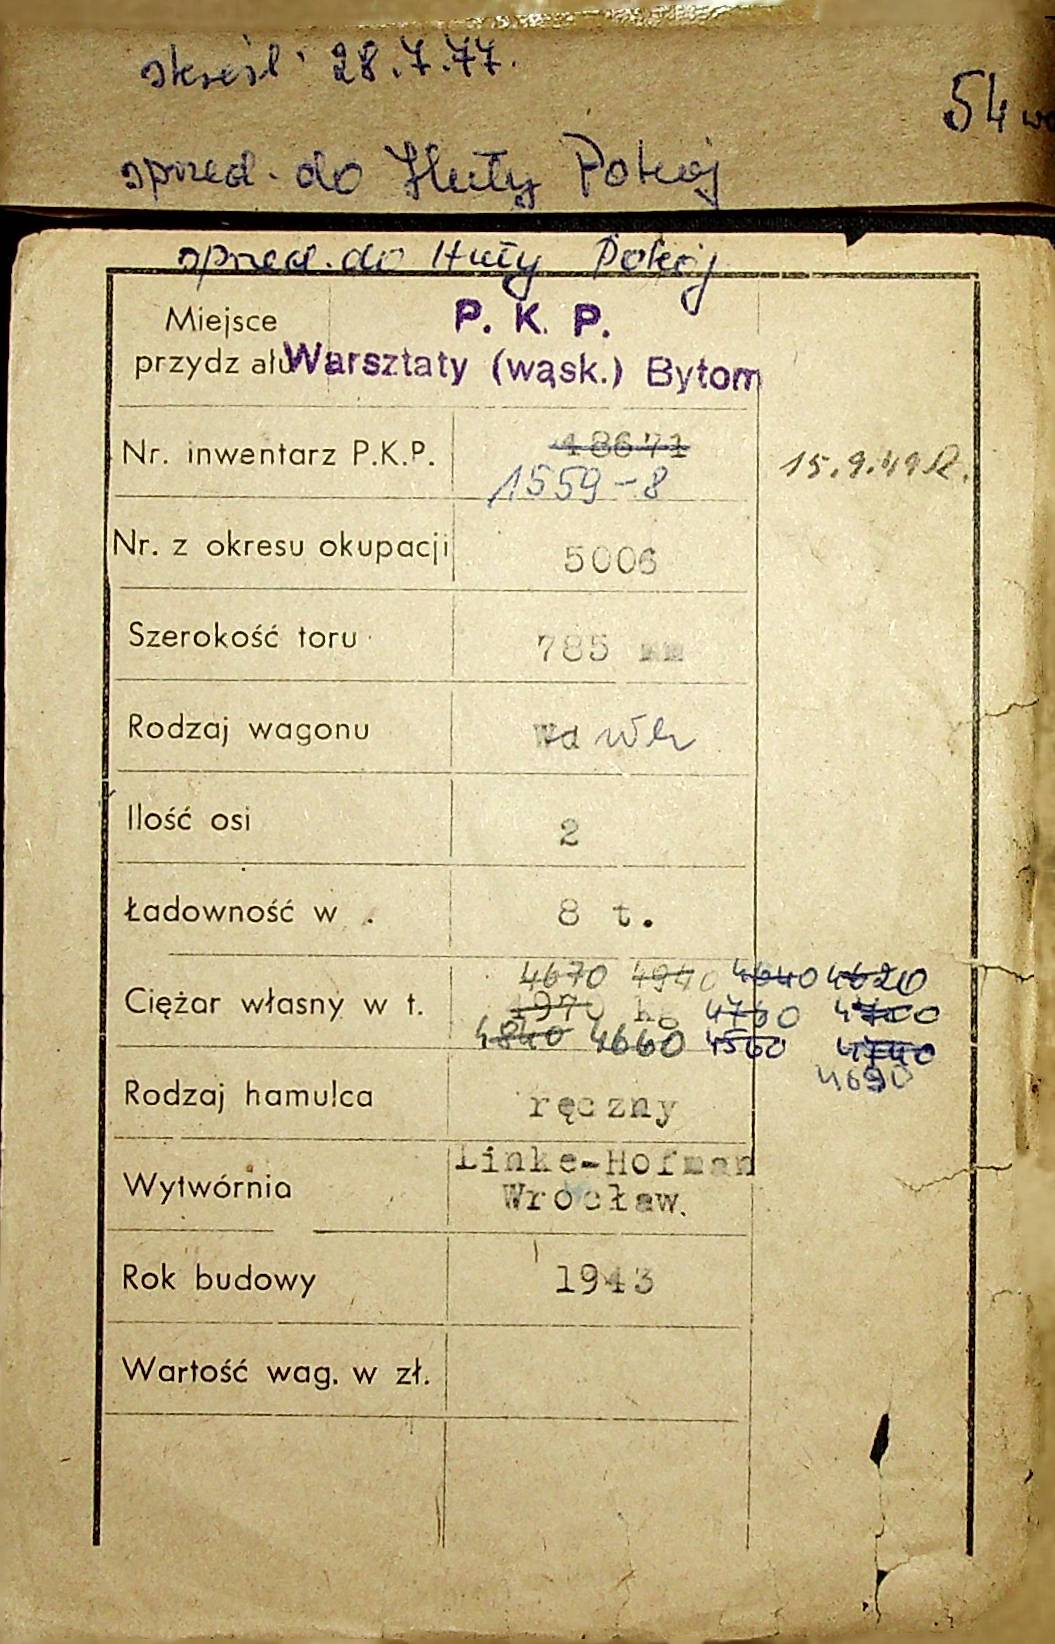 skreśl. 28.7.77.
54
sprzed. do Huty Pokój
sprzed. do Huty Pokój
Miejsce przydz ału P. K. P.
Warsztaty (wąsk.) Bytom
Nr. inwentarz P.K.P. 18671
1559-8 15.9.49 R.
Nr. z okresu okupacji 5006
Szerokość toru 785 mm
Rodzaj wagonu Wd
Ilość osi 2
Ładowność w . 8 t.
4670 4940 4640 4620
Ciężar własny w t. 1970 kg 4760 4700
4840 4660 4560 4740
4690
Rodzaj hamulca ręczny
Wytwórnia Linke-Hofman
Wrocław.
Rok budowy 1943
Wartość wag. w zł.